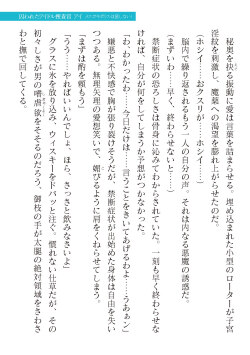 囚われたアイドル捜査官 アイ
秘奥を抉る振動に愛は言葉を詰まらせる。埋め込まれた小型のローターが子宮
淫紋を刺激し、魔薬への渇望を膨れ上がらせたのだ。
(ホシイ……おクスリが……ホシイ……)
脳内で繰り返されるもう一人の自分の声。それは内なる悪魔の誘惑だ。
(まずいわ……早く、終わらせないと……)
禁断症状の恐ろしさは骨身に沁みてわからされていた。一刻も早く終わらせな
ければ、自分が何をしてしまうか予想がつかなかった。
「わ、わかったわ……今日だけは……言うことをきいてあげるわよ……うああ
嫌悪と不快感で胸が張り裂けそうだが、禁断症状が出始めた身体は自由を失い
つつある。無理矢理の愛想笑いで、媚びるように
「まずは酌を頼もう」
「うう……やればいいんでしょ、ほら、さっさと飲みなさいよ」
グラスに氷を放り込み、ウイスキーをドバッと注ぐ。慣れない仕草だが、その
初々しさが男の嗜虐欲をそそるのだろう。御枝の手が太腿の絶対領域をさわさ
わと撫で回してくる。